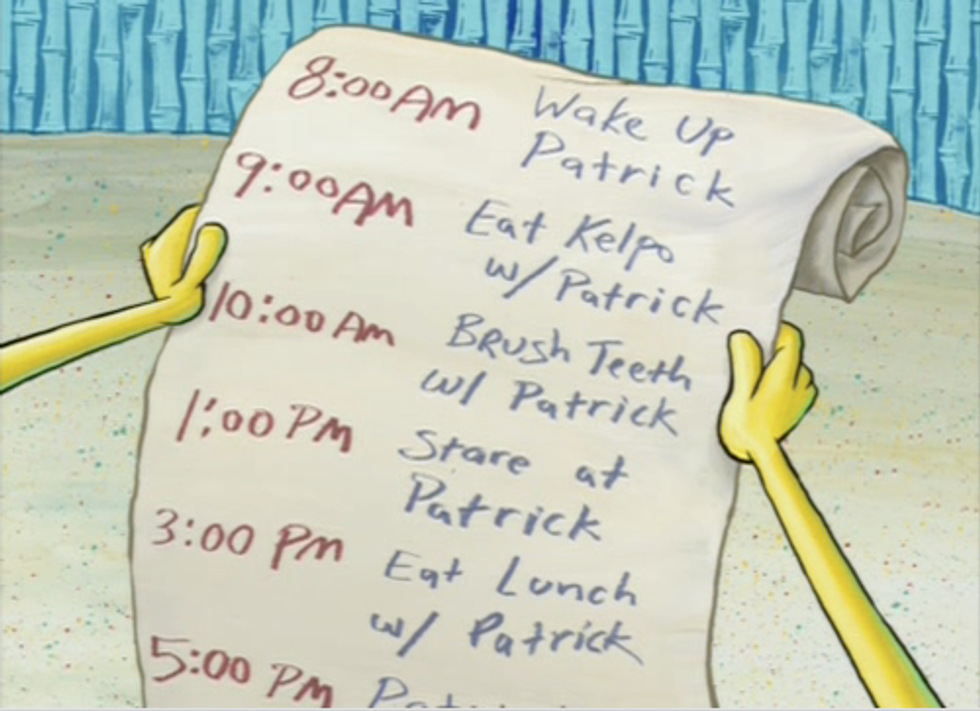 8:00 AM Wake Up
Patrick
9:00 AM Eat Kelpo
w/ Patrick
10:00 Am Brush Teeth
w/ Patrick
1:00 PM Stare at
Patrick
3:00 Pm Eat Lunch
w/ Patrick
5:00 Pm